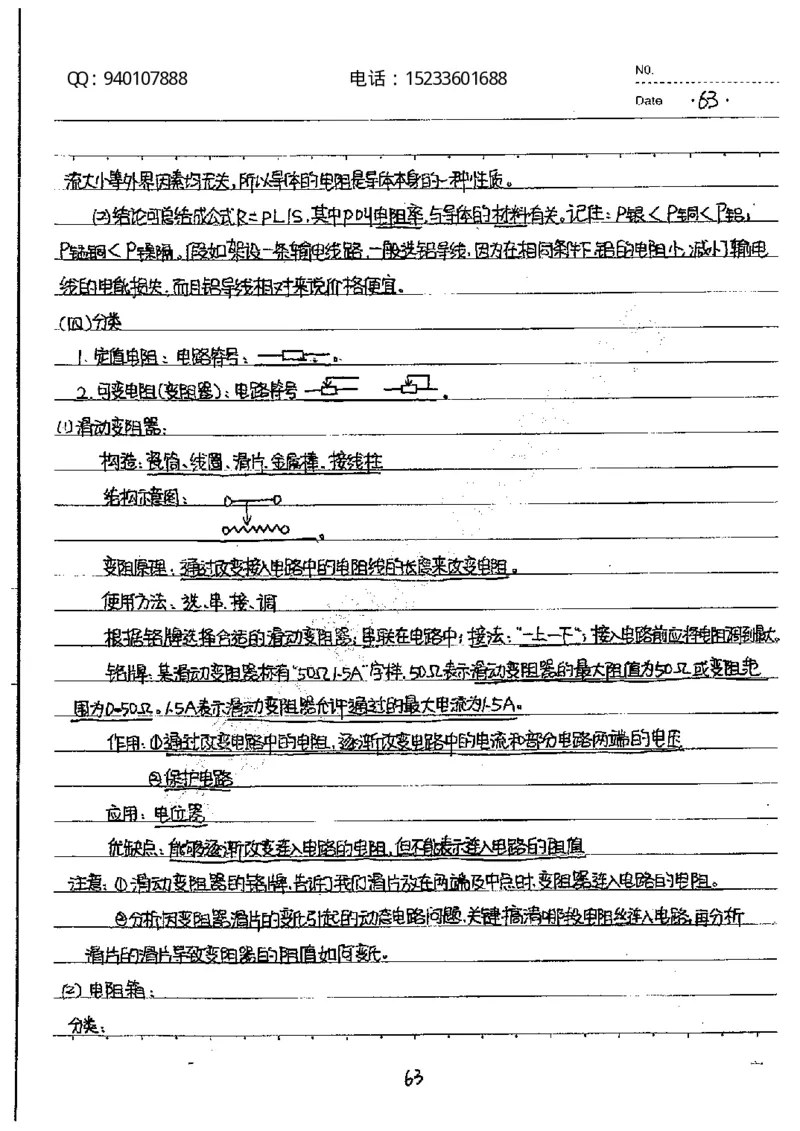 QQ：940107888 电话：15233601688 NO.
Date ·63·
流大小等外界因素均无关,所以导体的电阻是导体本身的一种性质。
(2)结论可总结成公式R=ρL/S,其中ρ叫电阻率,与导体的材料有关。记住:ρ银<ρ铜<ρ铝,
ρ锰铜<ρ镍隔。假如架设一条输电线路,一般选铝导线,因为在相同条件下,铝的电阻小,减小了输电
线的电能损失,而且铝导线相对来说价格便宜。
(四)分类
1.定值电阻:电路符号: 。
2.可变电阻(变阻器):电路符号 。
(1)滑动变阻器:
构造:瓷筒、线圈、滑片、金属棒、接线柱
结构示意图:
。
变阻原理:通过改变接入电路中的电阻线的长度来改变电阻。
使用方法:选、串、接、调
根据铭牌选择合适的滑动变阻器;串联在电路中;接法:"一上一下";接入电路前应将电阻调到最大。
铭牌:某滑动变阻器标有"50Ω1.5A"字样,50Ω表示滑动变阻器的最大阻值为50Ω或变阻范
围为0-50Ω。1.5A表示滑动变阻器允许通过的最大电流为1.5A。
作用:①通过改变电路中的电阻,逐渐改变电路中的电流和部分电路两端的电压
②保护电路
应用:电位器
优缺点:能够逐渐改变连入电路的电阻,但不能表示连入电路的阻值
注意:①滑动变阻器的铭牌,告诉了我们滑片放在两端及中点时,变阻器连入电路的电阻。
②分析因变阻器滑片的变化引起的动态电路问题,关键搞清哪段电阻丝连入电路,再分析
滑片的滑片导致变阻器的阻值如何变化。
(2)电阻箱:
分类:
63